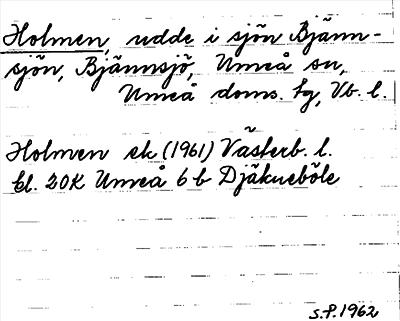 Holmen, udde i sjön Bjänn-
sjön, Bjännsjö, Umeå sn,
Umeå doms. tg, Vb. l.
Holmen ek (1961) Västerb. l.
bl. 20K Umeå 6b Djäkneböle
S.P. 1962